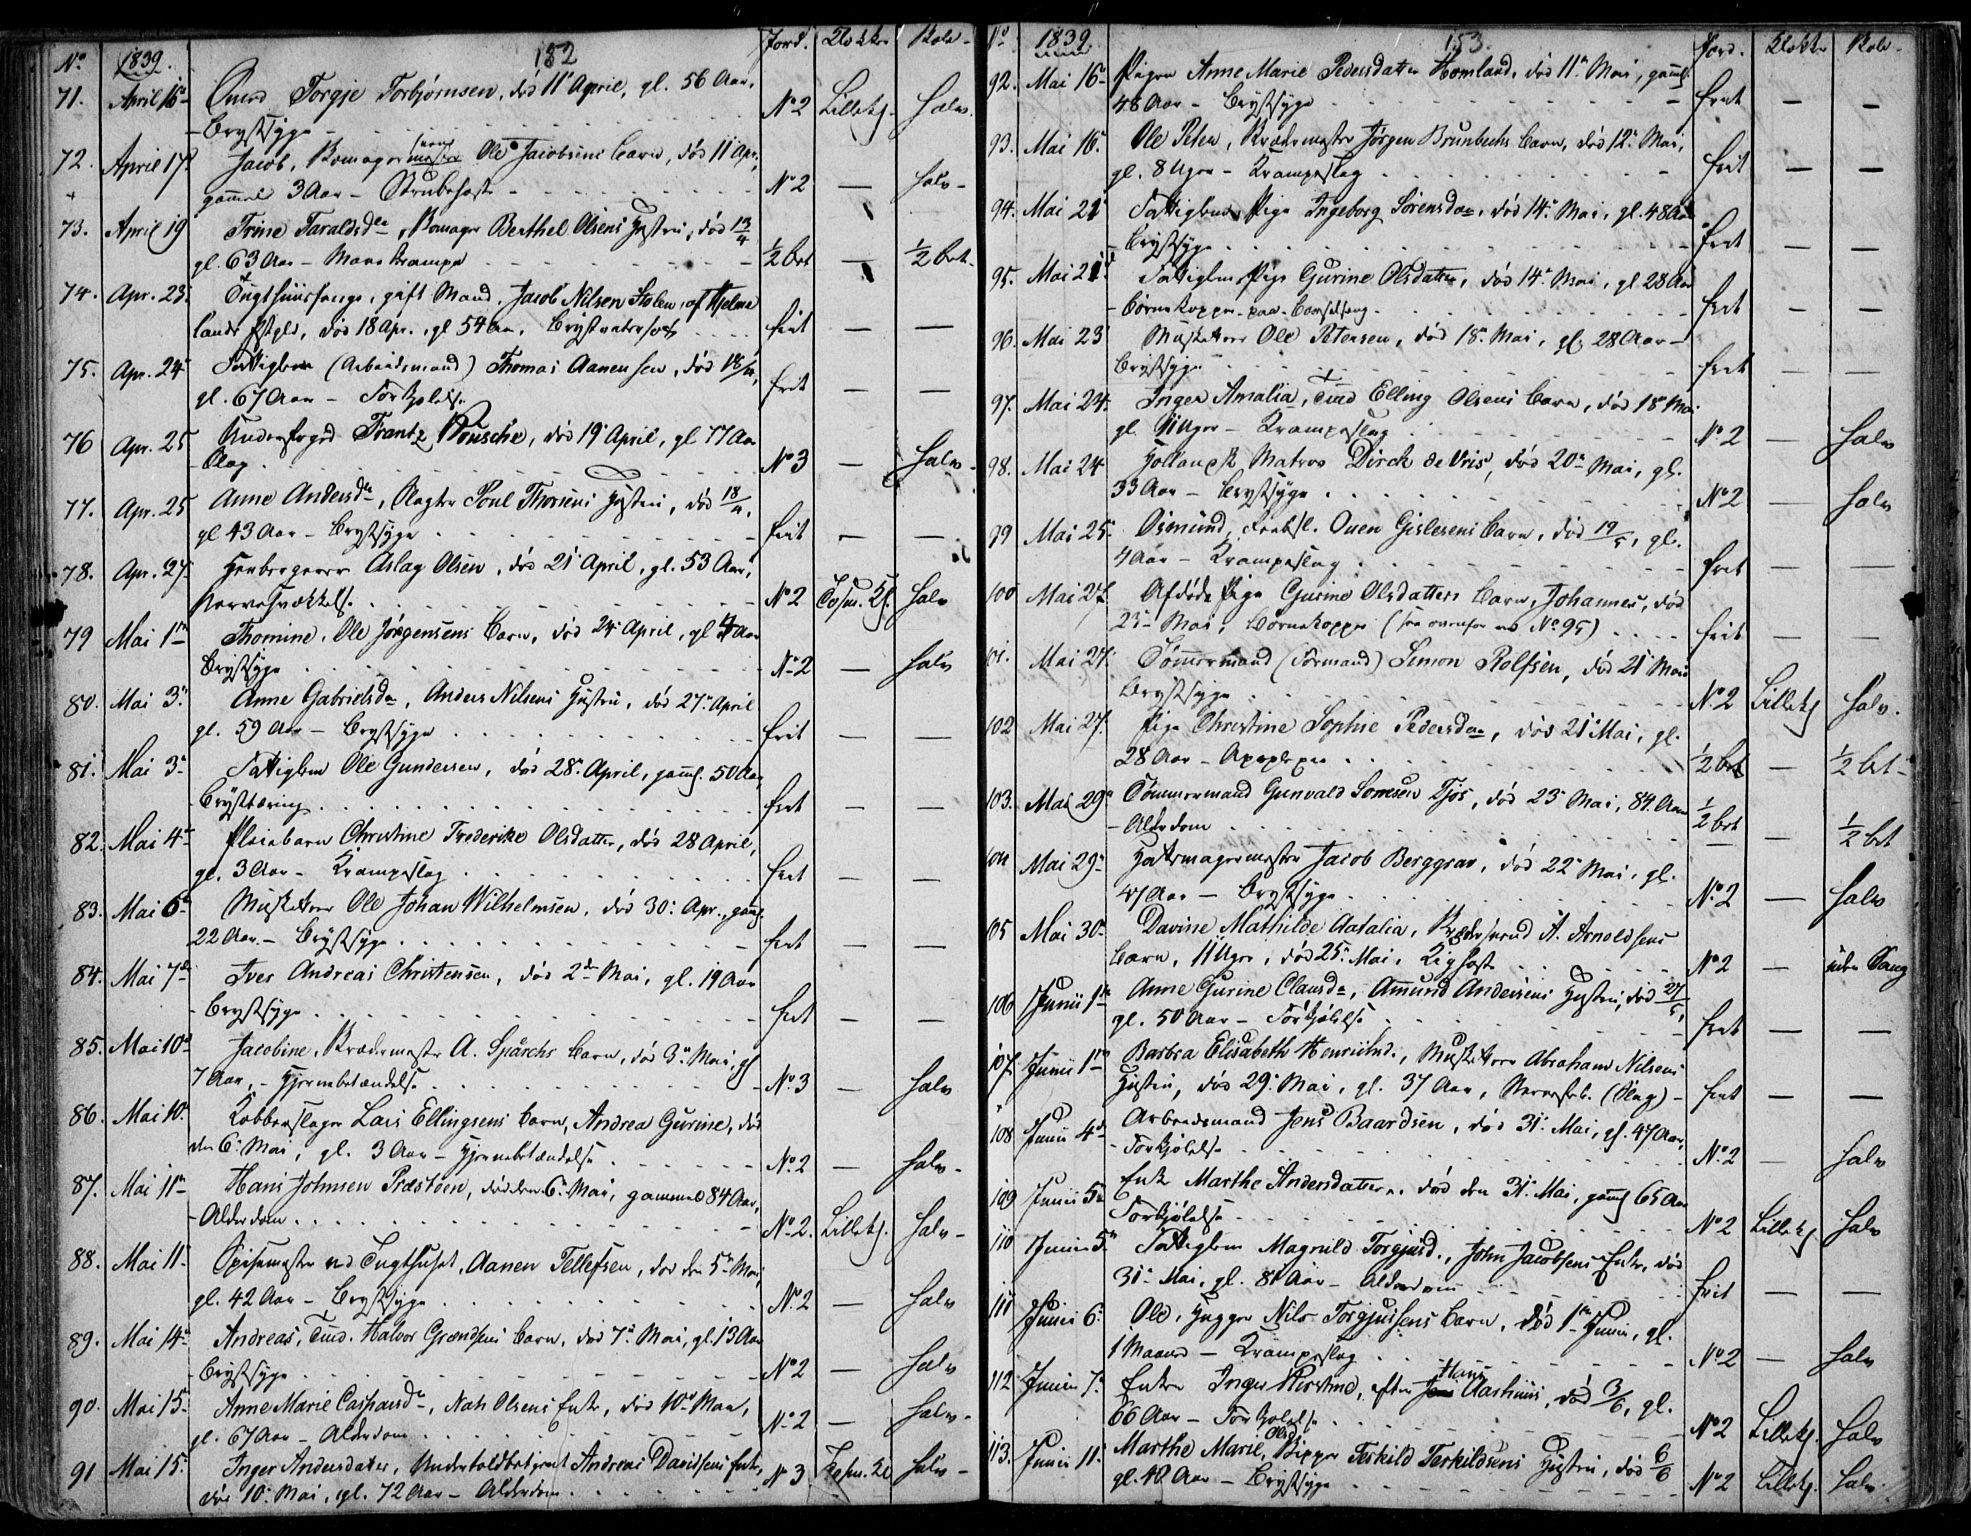 No 1839. 152 Jord. Klokke Kole-
71. April 16de Omed Torgje Torbjørnsen, død 11te April, gl. 56 Aar,
Brystsyge - No 2 Lillekl. halv
72. April 17 Jacob, Bomager Ole Jacobsens Barn, død 11 Apr.,
gammel 3 Aar - Strubehoste - No 2 — halv-
73. April 19 Trine Taraldsdr, Bomager Berthel Olsens Hustru, død 13/4
gl. 63 Aar - Mavekrampe - 1/2 bet — 1/2 bet.
74. Apr. 23. Tugthuusfange, gift Mand, Jacob Nilsen Stolen, af Hjelme
lands Pstgld, død 18 Apr., gl 54 Aar, frit — —
75. Apr. 24 Fattiglem (Arbeidsmand) Thomas Aanensen, død 18/4,
gl. 67 Aar - Forkjølelse frit — —
76 Apr. 25 Underfoged Frantz Bousche, død 19 April, gl 77 Aar
- Slag. No 3 — halv-
77. Apr. 25 Anne Andersdr, Slagter Poul Thorsens Hustru, død 18/4,
gl 43 Aar - Brystsyge frit — —
78. Apr. 27 Aslag Olsen, død 21 April, gl. 53 Aar,
Nervesvækkelse No 2 halv
79 Mai 1ste Thomine, Ole Jørgensens Barn, død 24 April, gl 4 Aar
Brystsyge No 2 — halv
80. Mai 3. Anne Gabrielsdr, Anders Nilsens Hustru, død 27. April
gl. 59 Aar - Brystsyge frit — —
81. Mai 3 Fattiglem Ole Gundersen, død 28 April, gaml. 50 Aar,
Brysttæring frit — —
82. Mai 4 Pleiebarn Christine Frederike Olsdatter, død 28 April,
gl. 3 Aar - Krampeslag frit — —
83. Mai 6 Musketeer Ole Johan Wilhelmsen, død 30. Apr., gaml
22 Aar - Brystsyge frit — —
84. Mai 7de Ives Andreas Christensen, død 2den Mai, gl. 19 Aar
- Brystsyge frit — —
85. Mai 10de Jacobine, Skrædermester A. Spärchs Barn, død 3 Mai, gl
7 Aar, - Hjernebetændelse No 3 — halv
86. Mai 10. Kobberslager Lars Ellingsens Barn, Andrea Gurine, død
den 6. Mai, gl. 3 Aar - Hjernebetændelse No 2 — halv-
87. Mai 11 Hans Johnsen Præstøen, død den 6. Mai, gammel 84 Aar,
- Alderdom No 2. Lillekl. halv-
88. Mai 11 Spisemester ved Tugthuset, Aanen Tellefsen, død den 5 Mai,
gl. 42 Aar - Brystsyge No 2 — halv
89. Mai 14 Andreas, Tmd. Halvor Grændsens Barn, død 7. Mai, gl. 13 Aar
- Brystsyge No 2 — halv
90. Mai 15 Anne Marie Caspersdr, Nath Olsens Enke, død 10 Mai,
gl. 67 Aar - Alderdom No 2 — halv-
91 Mai 15. Inger Andersdatter, Underholdbetjent Andreas Davidsens Enke,
død 10. Mai, gl. 72 Aar - Alderdom No 3 halv-
No 1839 153. Jord. Klokke Kole-
92. Mai 16 Pigen Anne Marie Pedersdatter Homland, død 11. Mai, gaml.
48 Aar - Brystsyge frit — —
93. Mai 16. Ole Peter, Skrædermester Jørgen Brunbechs Barn, død 12. Mai,
gl. 8 Uger - Krampeslag frit — —
94. Mai 21 Fattiglem Pige Ingeborg Sørensdr, død 14 Mai, gl. 48 Aar
Brystsyge frit — —
95. Mai 21 Fattiglem Pige Gurine Olsdatter, død 14 Mai, gl 28 Aar
- Børnekopper paa Barselseng frit — —
96. Mai 23 Musketeer Ole Petersen, død 18. Mai, gl. 28 Aar -
Brystsyge frit — —
97. Mai 24. Inger Amalia, Tmd Elling Olsens Barn, død 18 Mai
gl. 11 Uger - Krampeslag No 2 — halv
98. Mai 24 Hollandsk Matros Dirck de Vris, død 20. Mai, gl.
33 Aar - Brystsyge No 2 — halv
99 Mai 25 Osmund, Ouen Gislesens Barn, død 19/5, gl.
4 Aar - Krampeslag frit — —
100 Mai 27. Afdøde Pige Gurine Olsdatters Barn, Johannes, død
23 Mai, Børnekopper (see ovenfor ved No 95) frit — —
101. Mai 27. Tømmermand (Formand) Simon Rolfsen, død 21 Mai
Brystsyge No 2 Lillekl halv.
102 Mai 27. Pige Christine Sophie Pedersdr, død 21 Mai, gl.
28 Aar - Apoplexie 1/2 bet — 1/2 bet-
103. Mai 29 Tømmermand Gunvald Sørensen Tjøs, død 23 Mai, 84 Aar
- Alderdom 1/2 bet — 1/2 bet
104 Mai 29 Hattemagermester Jacob Berggrav, død 22 Mai, gl.
47 Aar - Brystsyge No 2 — halv
105 Mai 30 Davine Mathilde Aatalia, A. Arnoldsens
Barn, 11 Uger, død 25. Mai, Kighoste No 2 — uden Sang
106 Junii 1ste Anne Gurine Clausdr, Amund Andersens Hustru, død 27/5,
gl. 50 Aar - Forkjølelse frit — —
107. Junii 1ste Barbra Elisabeth Henriksd., Musketeer Abraham Nilsens
Hustru, død 29. Mai, gl. 37 Aar, Nervefeb. (Slag) - frit — —
108. Junii 4 Arbeidsmand Jens Baardsen, død 31. Mai, gl. 47 Aar,
- Forkjølelse No 2 — halv
109 Junii 5 Enke Marthe Andersdatter, død den 31. Mai, gaml 65 Aar
Forkjølelse No 2 Lillekl halv
110 Junii 5 Fattiglem Magnild Torgjusd., John Jacobsens Enke, død
31 Mai, gl. 81 Aar - Alderdom frit — —
111 Junii 6. Ole, Nils Torgjussens Barn, død 1ste Junii, gl.
1 Maaned - Krampeslag No 2 — halv
112 Junii 7. Enke Inger Kirstine, efter Hans Aarhuus, død 3/6, gl.
66 Aar - Forkjølelse No 2 Lillekl. halv
113. Junii 11. Marthe Marie Olsdr, Terkild Terkildsens Hustru, død 6/6
gl. 48 Aar - Brystsyge No 2 Lillekl. halv